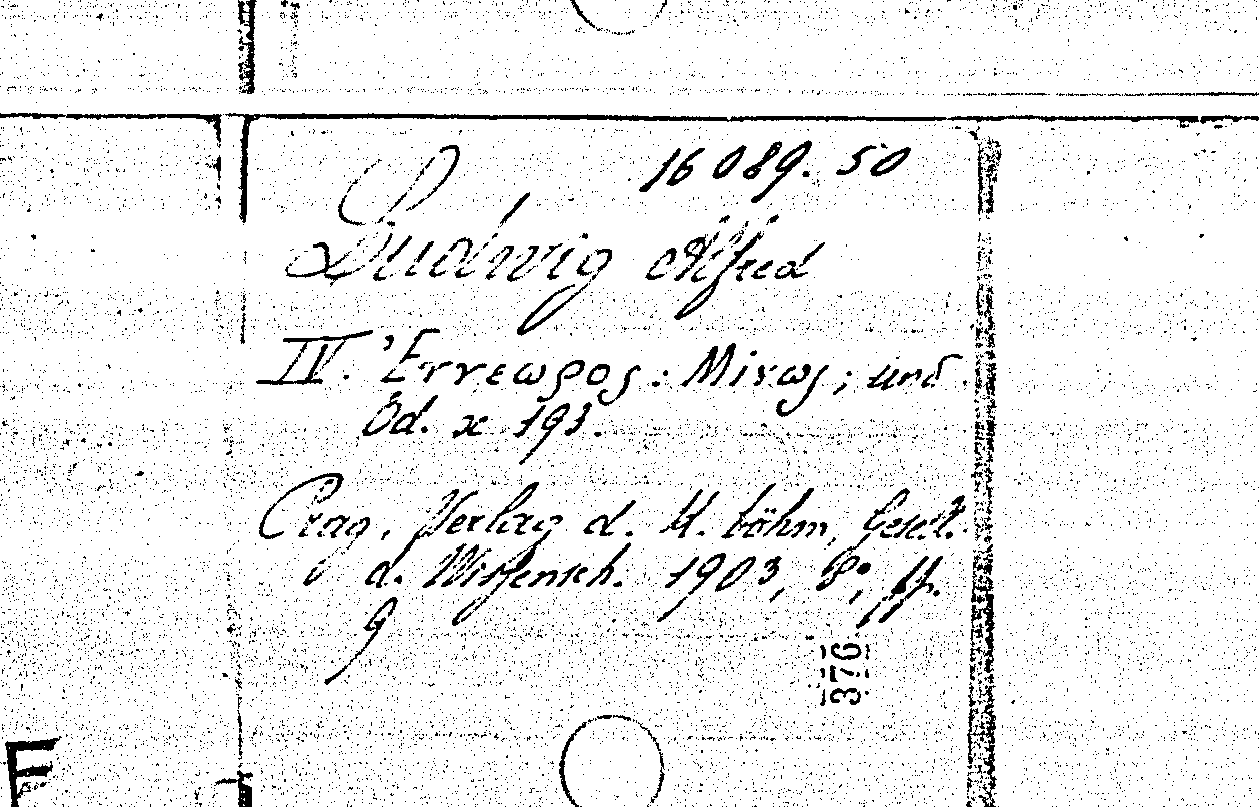 16 089. 50
Ludwig Alfred
IV. Ἐννεωρος: Μινως; und
Od. x 193.
Prag, Verlag d. K. böhm. Gesell.
d. Wissensch. 1903, 8°, ff.
9
376
F